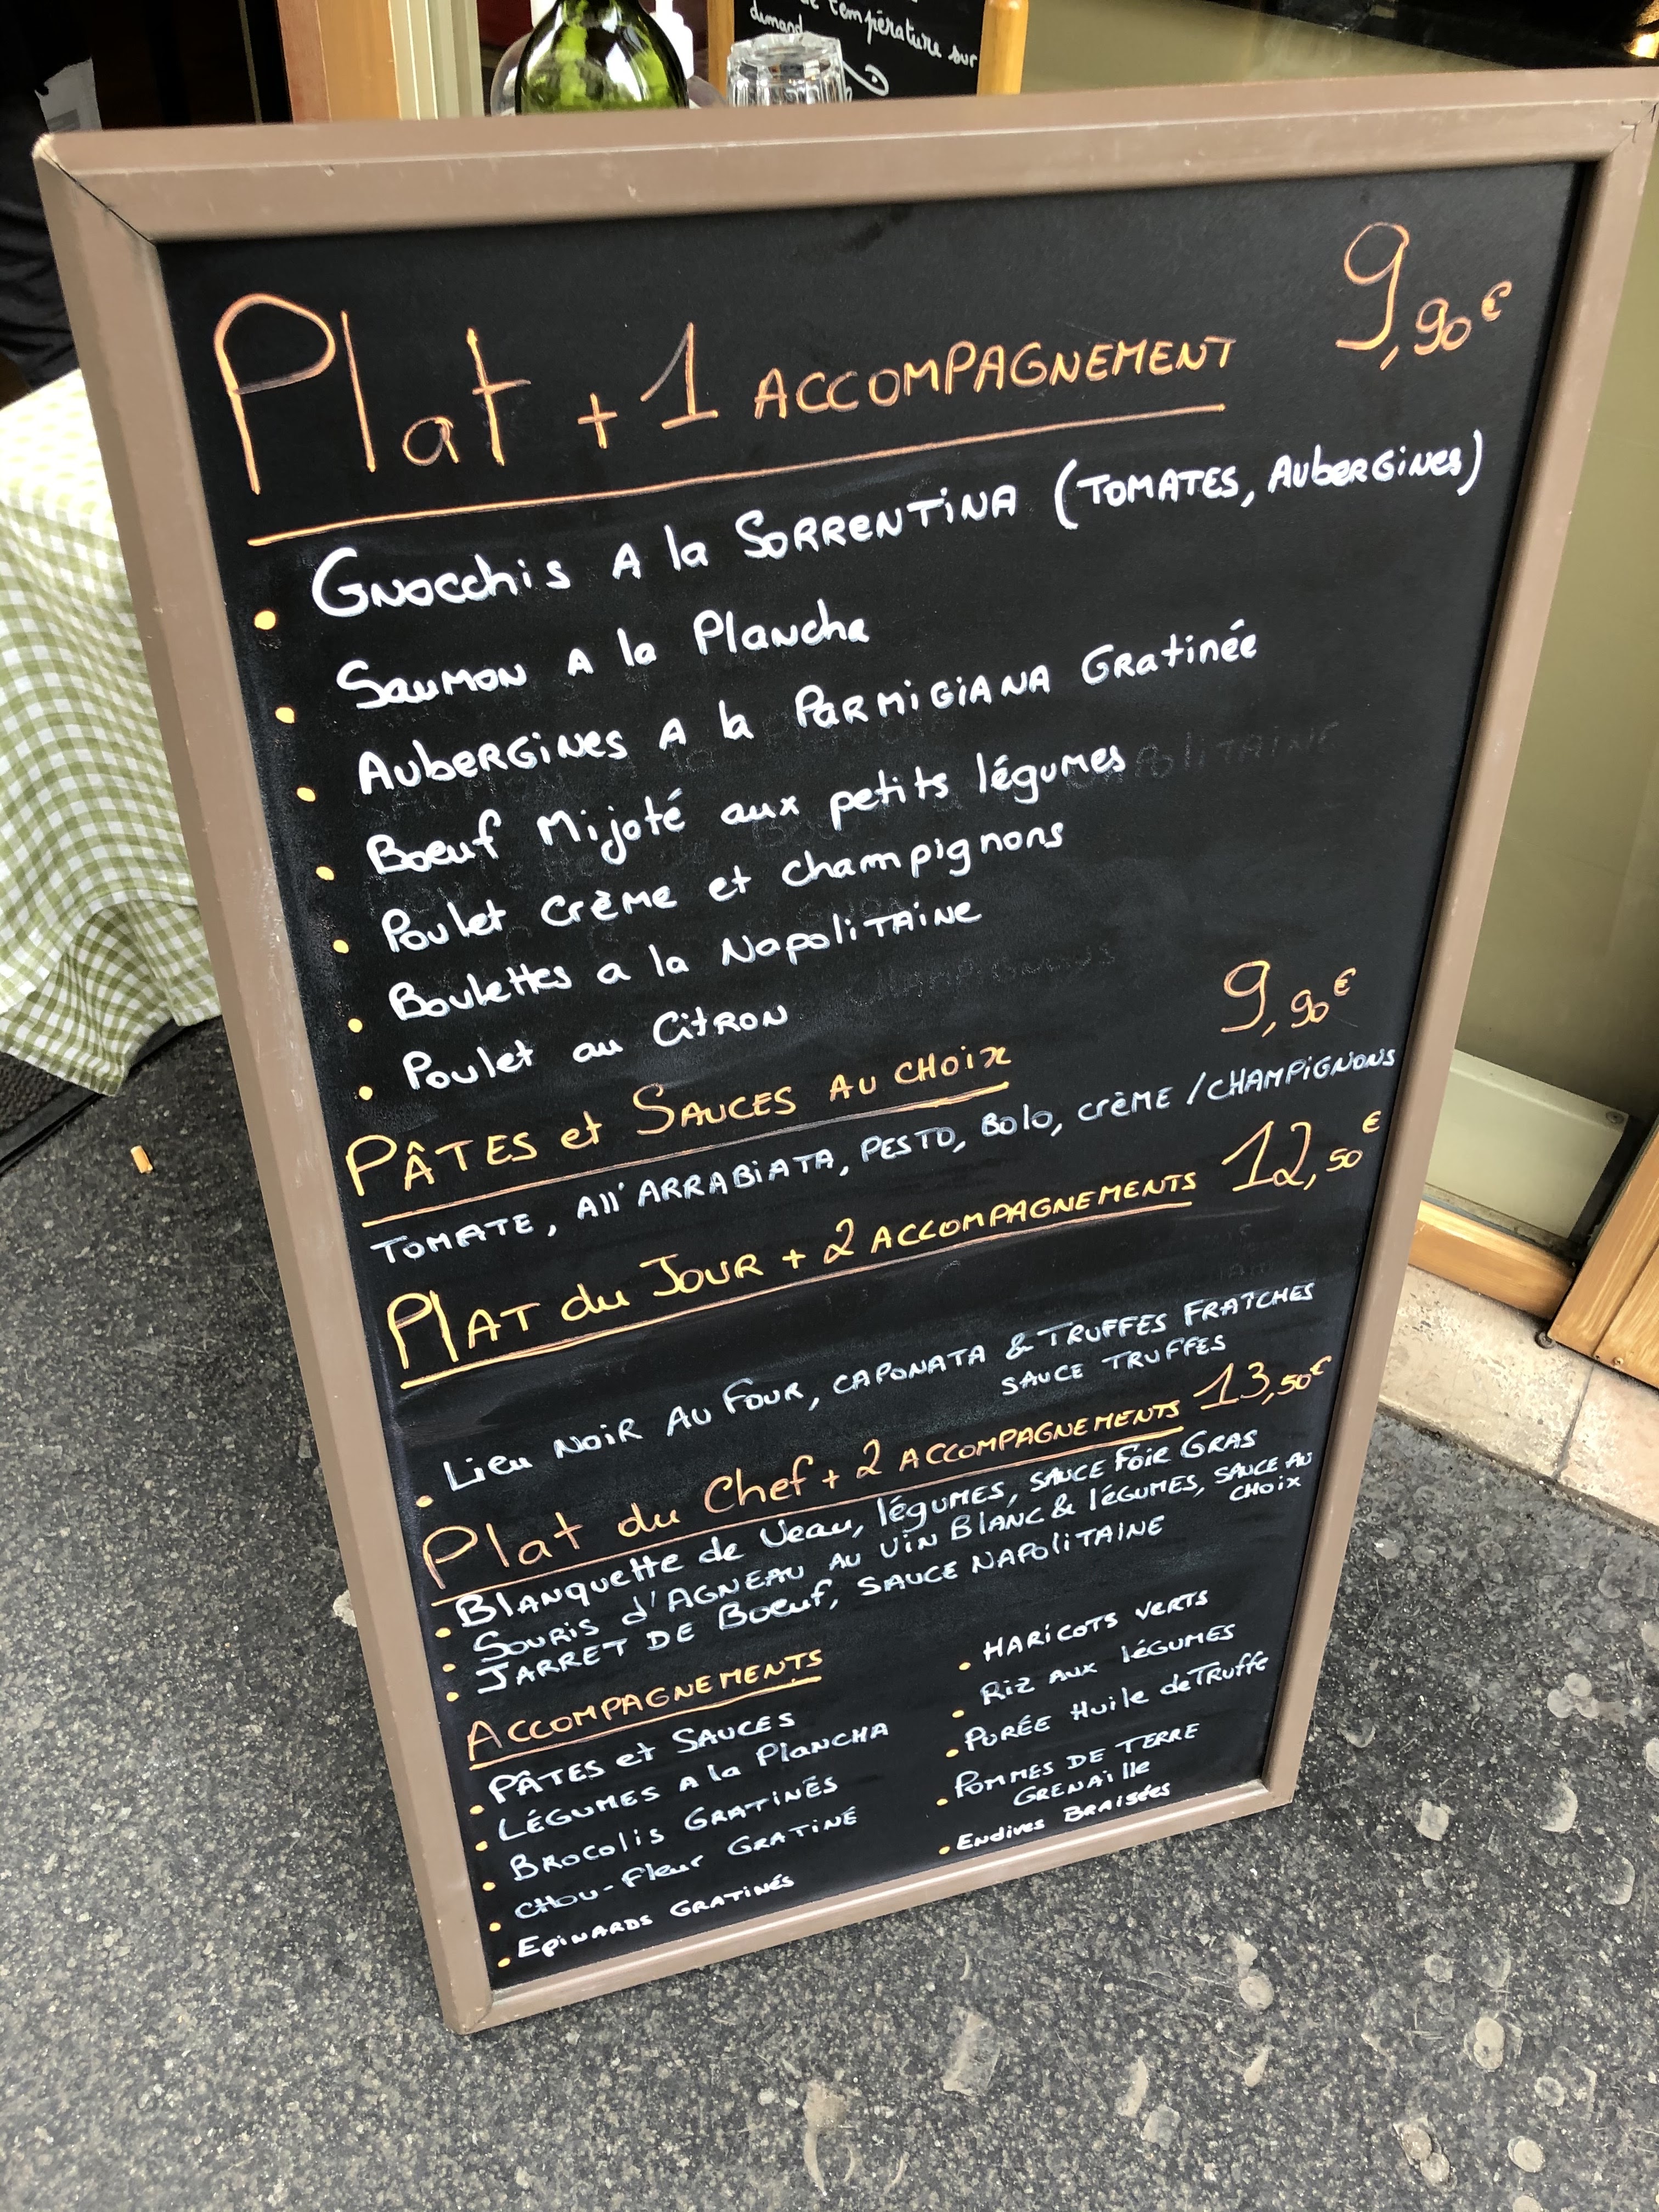 de température sur
demand
Plat + 1 ACCOMPAGNEMENT 9,90€
• Gnocchis A la Sorrentina (TOMATES, Aubergines)
• Saumon A la Plancha
• Aubergines A la Parmigiana Gratinée
• Boeuf Mijoté aux petits légumes
• Poulet Crème et champignons
• Boulettes a la Napolitaine
• Poulet au Citron
PÂTES et SAUCES AU CHOIX 9,90€
TOMATE, All'ARRABIATA, PESTO, Bolo, crème / CHAMPIGNONS
PLAT du JOUR + 2 ACCOMPAGNEMENTS 12,50€
• Lieu NOIR AU FOUR, CAPONATA & TRUFFES FRAÎCHES
SAUCE TRUFFES
Plat du Chef + 2 ACCOMPAGNEMENTS 13,50€
• Blanquette de Veau, légumes, SAUCE FOIE GRAS
• Souris d'AGNEAU AU VIN BLANC & légumes, SAUCE AU
CHOIX
• JARRET DE Boeuf, SAUCE NAPOLITAINE
ACCOMPAGNEMENTS
• PÂTES et SAUCES
• LÉGUMES A la PlANCHA
• BROCOLIS GRATINÉS
• CHOU-Fleur GRATINÉ
• EPINARDS GRATINÉS
• HARICOTS VERTS
• Riz AUX légumes
• PURÉE Huile de TRUffe
• POMMES DE TERRE
GRENAille
• Endives BRAISÉES